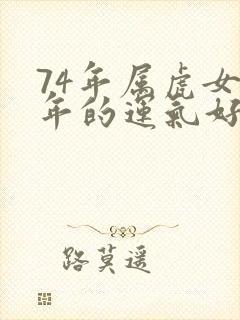 74年属虎女
年的运气好
路莫遥